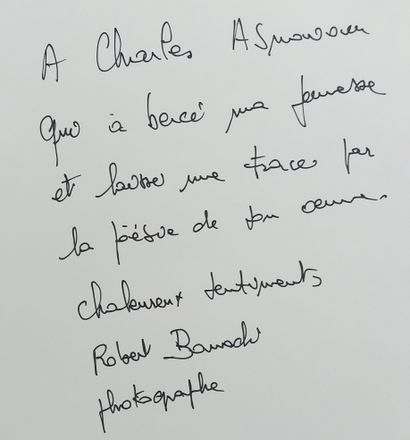 A Charles Asnavour
qui à bercé ma jeunesse
et laisse une trace par
la poésie de ton œuvre.
chaleureux sentiments
Robert
photographe